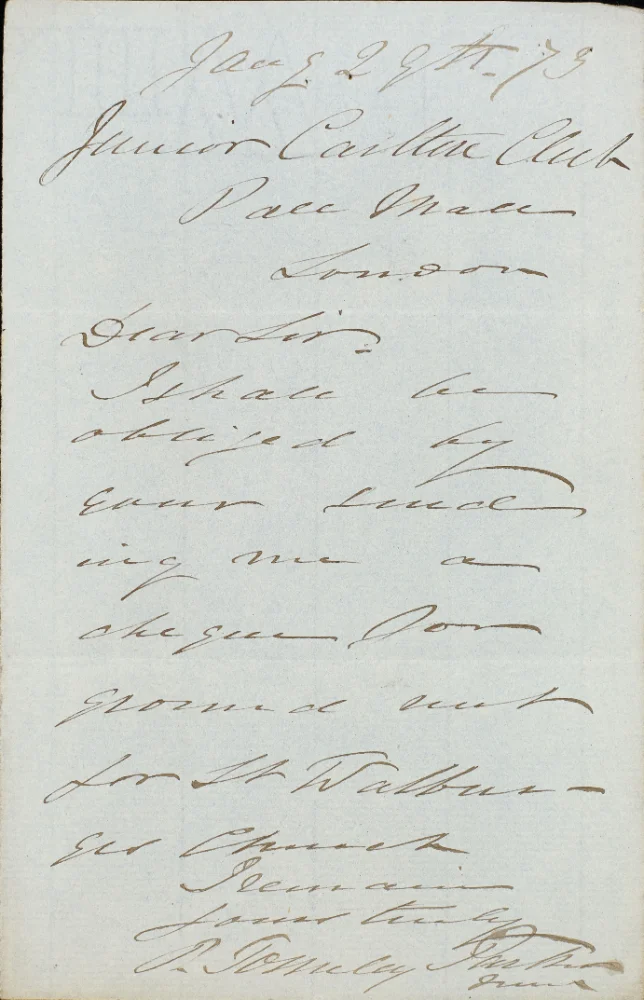 Jany 29th. 73
Junior Carlton Club
Pall Mall
London
Dear Sir.
I shall be
obliged by
your send
ing me a
cheque for
ground rent
for St Walbur-
ges Church
I remain
yours truly
P. Townley